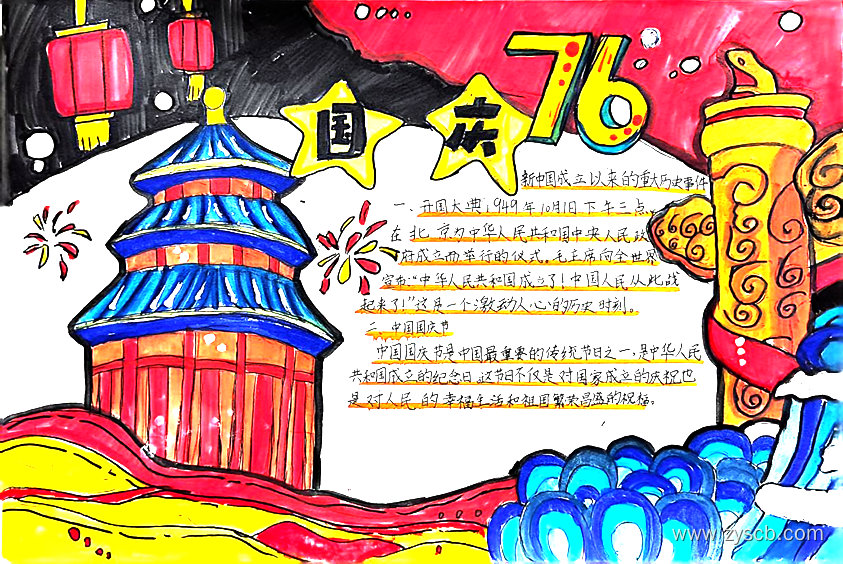 国 庆 76
新中国成立以来的重大历史事件
一、开国大典1949年10月1日下午三点,
在北京为中华人民共和国中央人民政
府成立而举行的仪式,毛主席向全世界
宣布:"中华人民共和国成立了!中国人民从此战
起来了!"这是一个激动人心的历史时刻。
二、中国国庆节
中国国庆节是中国最重要的传统节日之一,是中华人民
共和国成立的纪念日,这节日不仅是对国家成立的庆祝也
是对人民的幸福生活和祖国繁荣昌盛的祝福。
www.zyscb.com